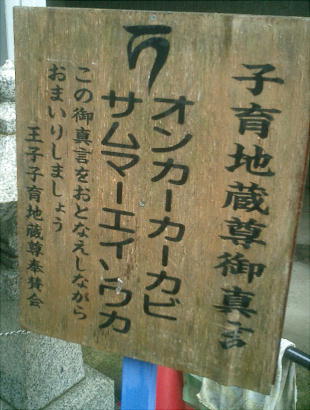 子育地蔵尊御真言
オンカーカーカビ
サムマーエイソワカ
この御真言をおとなえしながら
おまいりしましょう
王子子育地蔵尊奉賛会